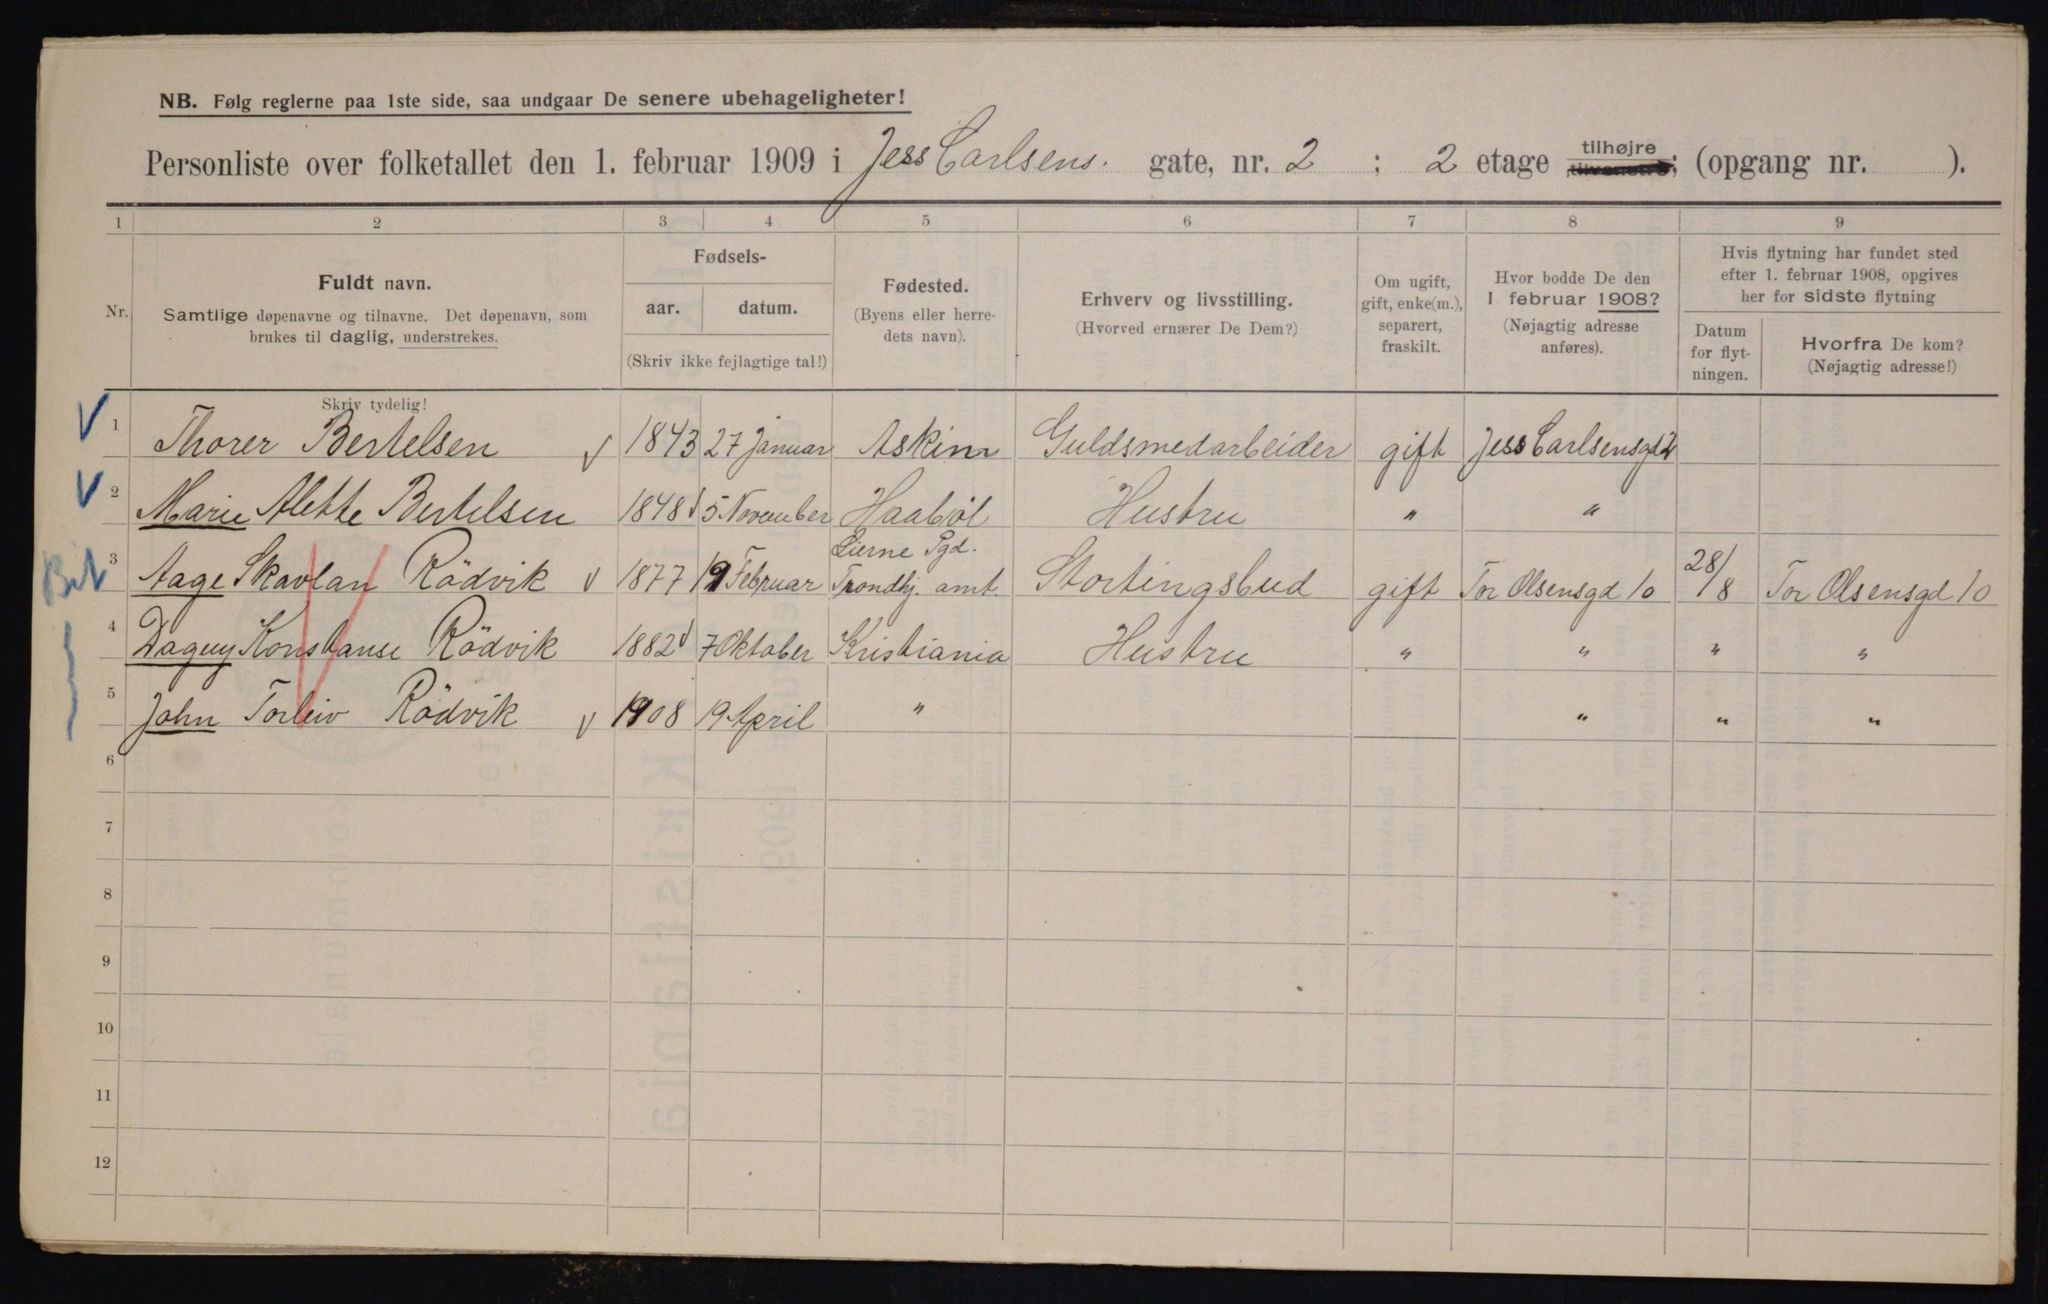 NB. Følg reglerne paa 1ste side, saa undgaar De senere ubehageligheter!
Personliste over folketallet den 1. februar 1909 i Jess Carlsens. gate, nr. 2 ; 2 etage tilhøjre tilvenstre; (opgang nr. ).
1 2 3 4 5 6 7 8 9
Nr.
Fuldt navn.
Samtlige døpenavne og tilnavne. Det døpenavn, som
brukes til daglig, understrekes.
Fødsels-
aar. datum.
(Skriv ikke fejlagtige tal!)
Fødested.
(Byens eller herre-
dets navn).
Erhverv og livsstilling.
(Hvorved ernærer De Dem?)
Om ugift,
gift, enke(m.),
separert,
fraskilt.
Hvor bodde De den
1 februar 1908?
(Nøjagtig adresse
anføres).
Hvis flytning har fundet sted
efter 1. februar 1908, opgives
her for sidste flytning
Datum
for flyt-
ningen.
Hvorfra De kom?
(Nøjagtig adresse!)
Skriv tydelig!
1 Thorer Bertelsen 1843 27 Januar Askim Guldsmedarbeider gift Jess Carlsensgd 2
2 Marie Alette Bertelsen 1848 5 November Haabøl Hustru " "
3 Aage Skavlan Rödvik 1877 19 Februar Lierne Pgd. Trondhj. amt. Stortingsbud gift Tor Olsensgd 10 28/8 Tor Olsensgd 10
4 Dagny Konstanse Rödvik 1882 7 Oktober Kristiania Hustru " " " "
5 John Torleiv Rödvik 1908 19 April " " " "
6
7
8
9
10
11
12